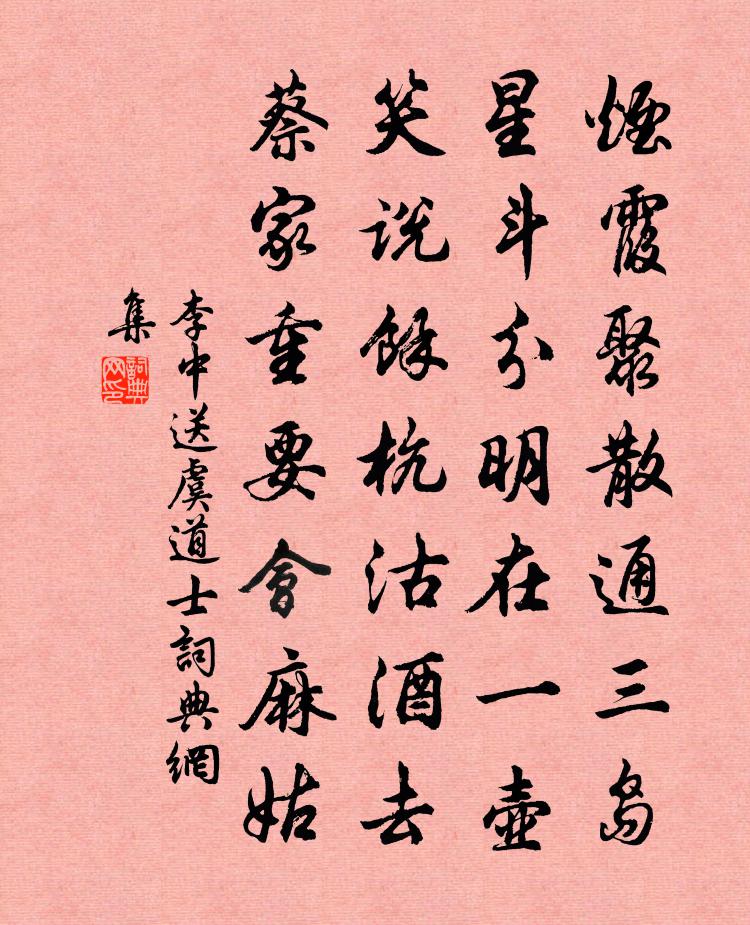 煙霞聚散通三島
星斗分明在一壺
笑說餘杭沽酒去
蔡家重要會麻姑
李中送虞道士詞典網
集
詞典
网印